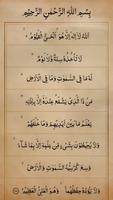 بِسْمِ اللَّهِ الرَّحْمَٰنِ الرَّحِيمِ
اللَّهُ لَا إِلَٰهَ إِلَّا هُوَ الْحَيُّ الْقَيُّومُ
لَا تَأْخُذُهُ سِنَةٌ وَلَا نَوْمٌ
لَهُ مَا فِي السَّمَاوَاتِ وَمَا فِي الْأَرْضِ
مَنْ ذَا الَّذِي يَشْفَعُ عِنْدَهُ إِلَّا بِإِذْنِهِ
يَعْلَمُ مَا بَيْنَ أَيْدِيهِمْ وَمَا خَلْفَهُمْ
وَلَا يُحِيطُونَ بِشَيْءٍ مِنْ عِلْمِهِ إِلَّا بِمَا شَاءَ
وَسِعَ كُرْسِيُّهُ السَّمَاوَاتِ وَالْأَرْضَ
وَلَا يَئُودُهُ حِفْظُهُمَا